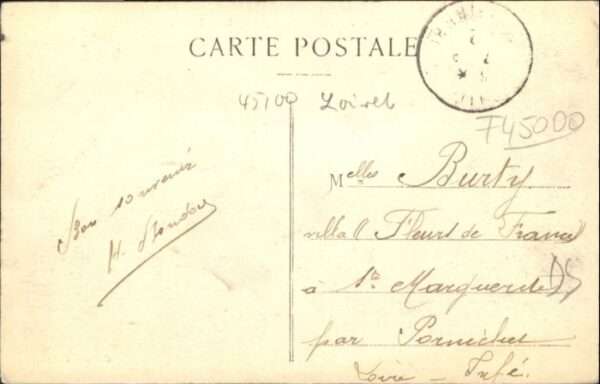 CARTE POSTALE
45100 Loiret
F45000
Melles Burty
villa Fleurs de France
à Ste Marguerite
par Pornichet
Loire - Infé.
Bon souvenir
H.